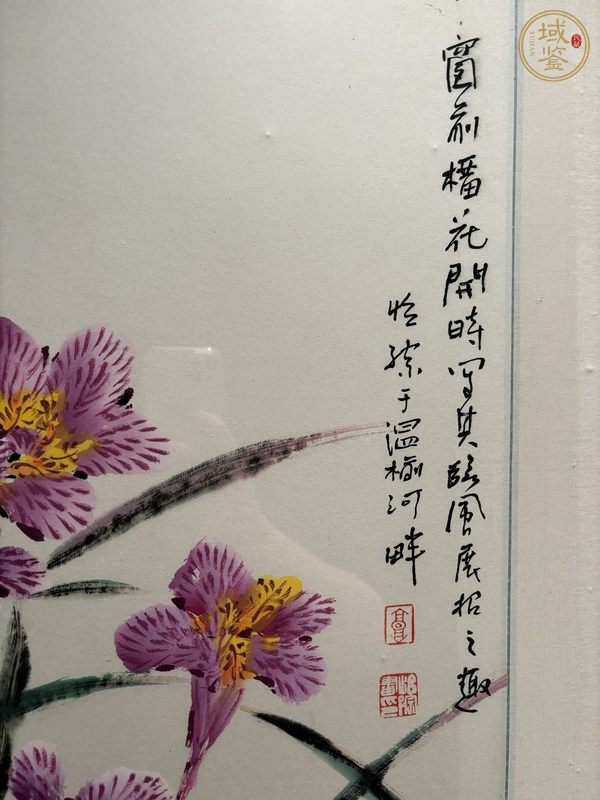 窗前花開時写其臨風展招之趣
怡綜于溫榆河畔
高
域鉴